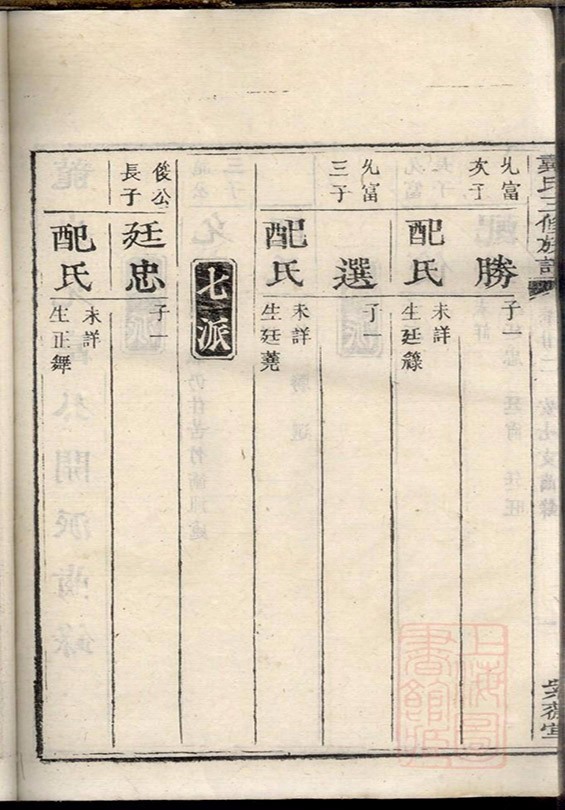 龔氏三修族譜
允富
次子
勝
子一
配氏
未詳
生廷籙
允富
三子
選
子一
配氏
未詳
生廷蕘
七派
俊公
長子
廷忠
子一
配氏
未詳
生正舞
上海圖書館藏